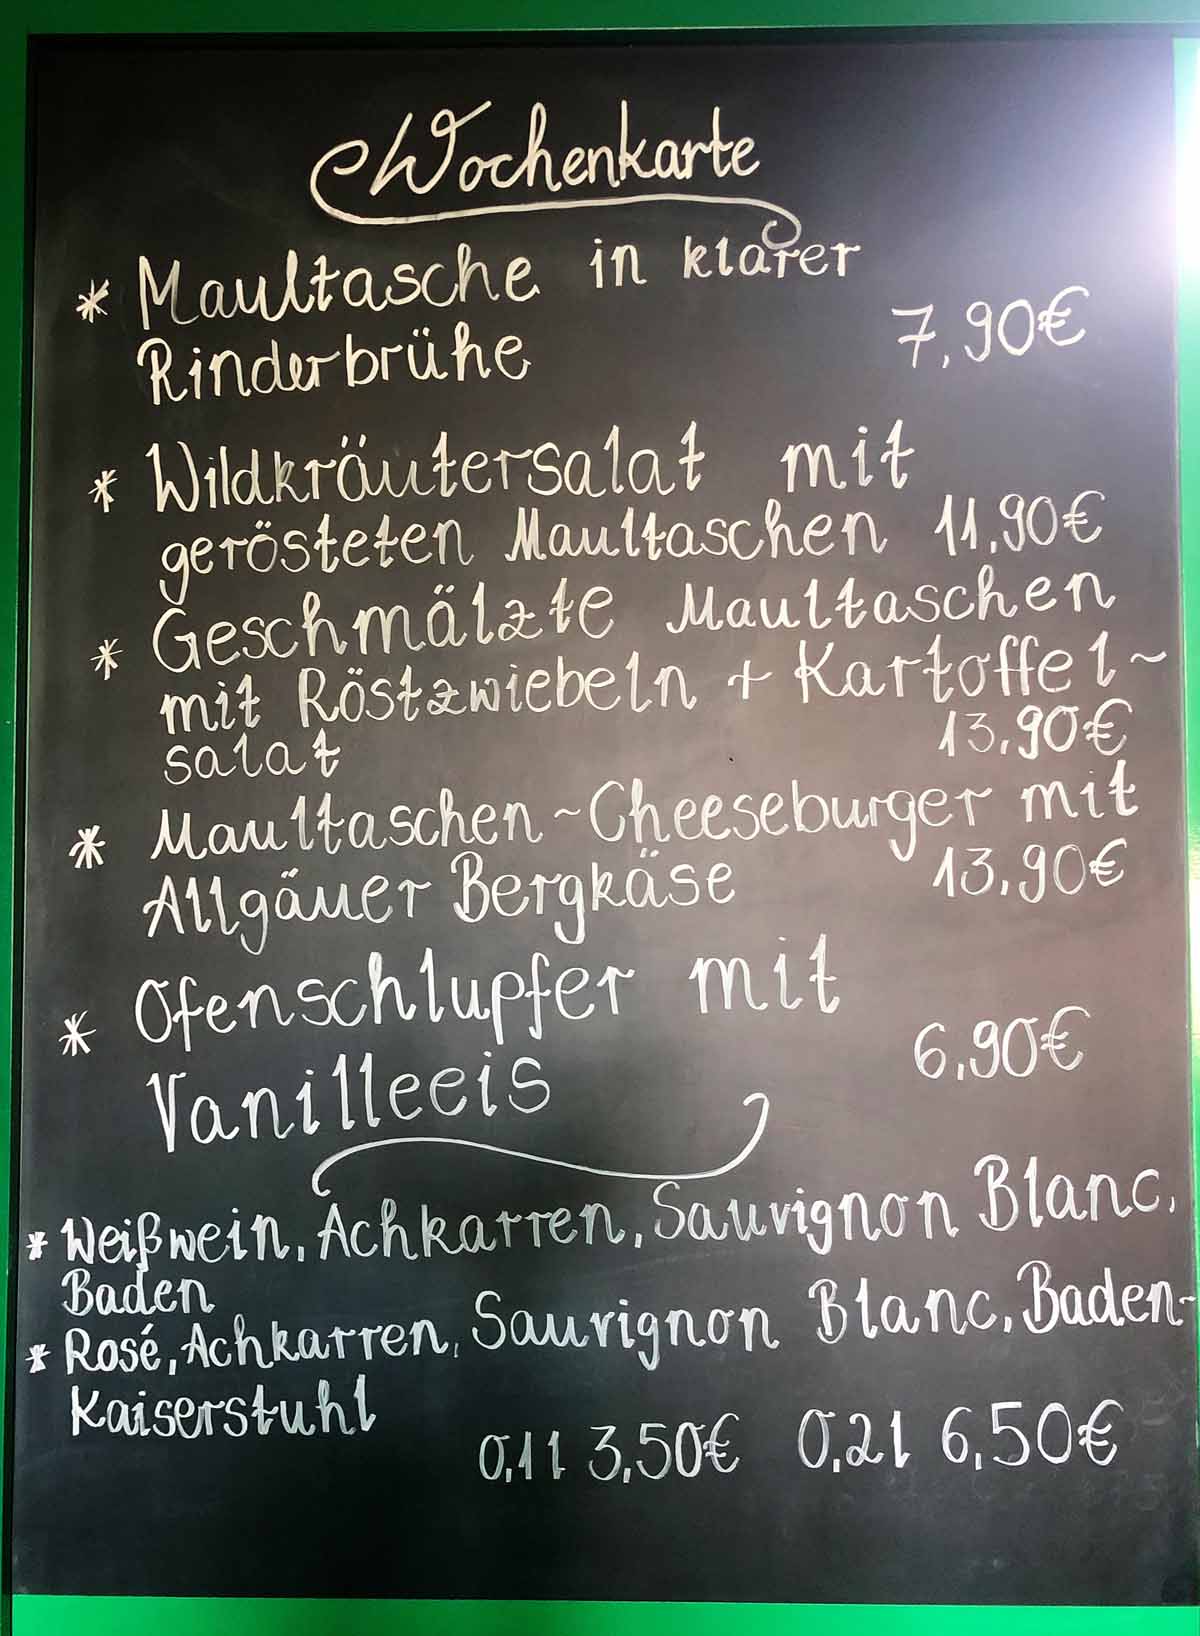 Wochenkarte
* Maultasche in klarer
Rinderbrühe 7,90€
* Wildkräutersalat mit
gerösteten Maultaschen 11,90€
* Geschmälzte Maultaschen
mit Röstzwiebeln + Kartoffel~
salat 13,90€
* Maultaschen~Cheeseburger mit
Allgäuer Bergkäse 13,90€
* Ofenschlupfer mit
Vanilleeis 6,90€
* Weißwein, Achkarren, Sauvignon Blanc,
Baden
* Rosé, Achkarren, Sauvignon Blanc, Baden-
Kaiserstuhl
0,1l 3,50€ 0,2l 6,50€